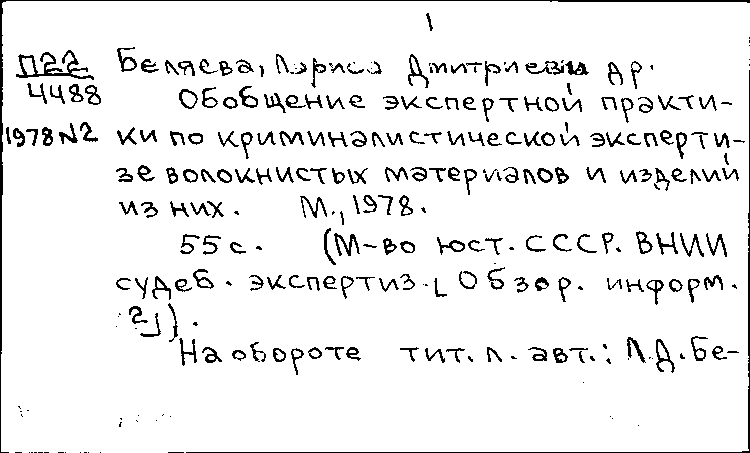 1
П22 Беляева, Лариса Дмитриевна и др.
4488 Обобщение экспертной практи-
1978 N2 ки по криминалистической эксперти-
зе волокнистых материалов и изделий
из них. М., 1978.
55 с. (М-во юст. СССР. ВНИИ
судеб. экспертиз. [Обзор. информ.
2]).
На обороте тит. л. авт.: Л.Д. Бе-